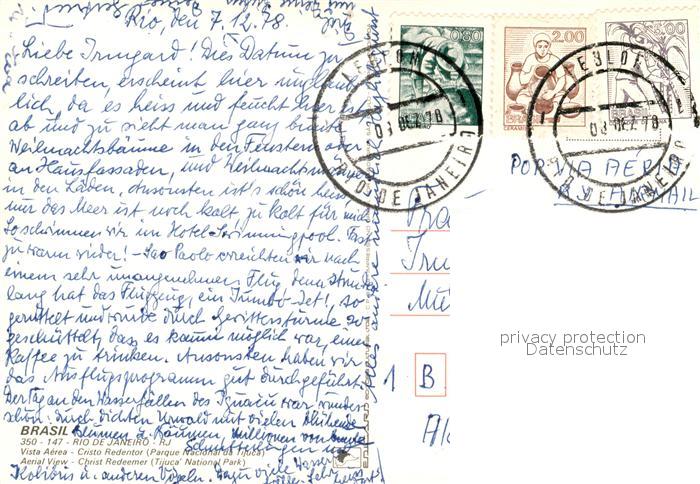 Rio, den 7.12.78.
Liebe Irmgard! Dies Datum zu
schreiben, erscheint hier unglaub-
lich, da es heiss und feucht hier ist
ab und zu sieht man ganz bunte
Weihnachtsbäume in den Fenstern oder
an Hausfassaden, und Weihnachtsmänner
in den Läden. Ansonsten ist's schön heiss
nur das Meer ist noch kalt zu kalt für mich
So schwimmen wir im Hotel-Swimmingpool. Fast
zu warm wieder! - Sao Paolo erreichten wir nach
einem sehr unangenehmen Flug, denn stunden
lang hat das Flugzeug, ein Jumbo-Jet!, so
gerüttelt und wurde durch Gewitterstürme so
geschüttelt, dass es kaum möglich war, einen
Kaffee zu trinken. Ansonsten haben wir
das Ausflugsprogramm gut durchgeführt.
Der Tag an den Wasserfällen des Iguacu war wunder-
schön: durch dichten Urwald mit vielen blühende
Blumen u. Bäumen, Millionen von
Schmetterlingen
Kolibris u. anderen Vögeln. Dazu viele Wasser
BRASIL
350 - 147 - RIO DE JANEIRO - RJ
Vista Aérea - Cristo Redentor (Parque Nacional da Tijuca)
Aerial View - Christ Redeemer (Tijuca National Park)
0,80
2,00
5,00
LEBLON
08 DEZ 78
RIO DE JANEIRO
LEBLON
08 DEZ 78
RIO DE JANEIRO
POR VIA AÉREA
AIR MAIL
Fra
Irm
Mü
1 B
privacy protection
Datenschutz